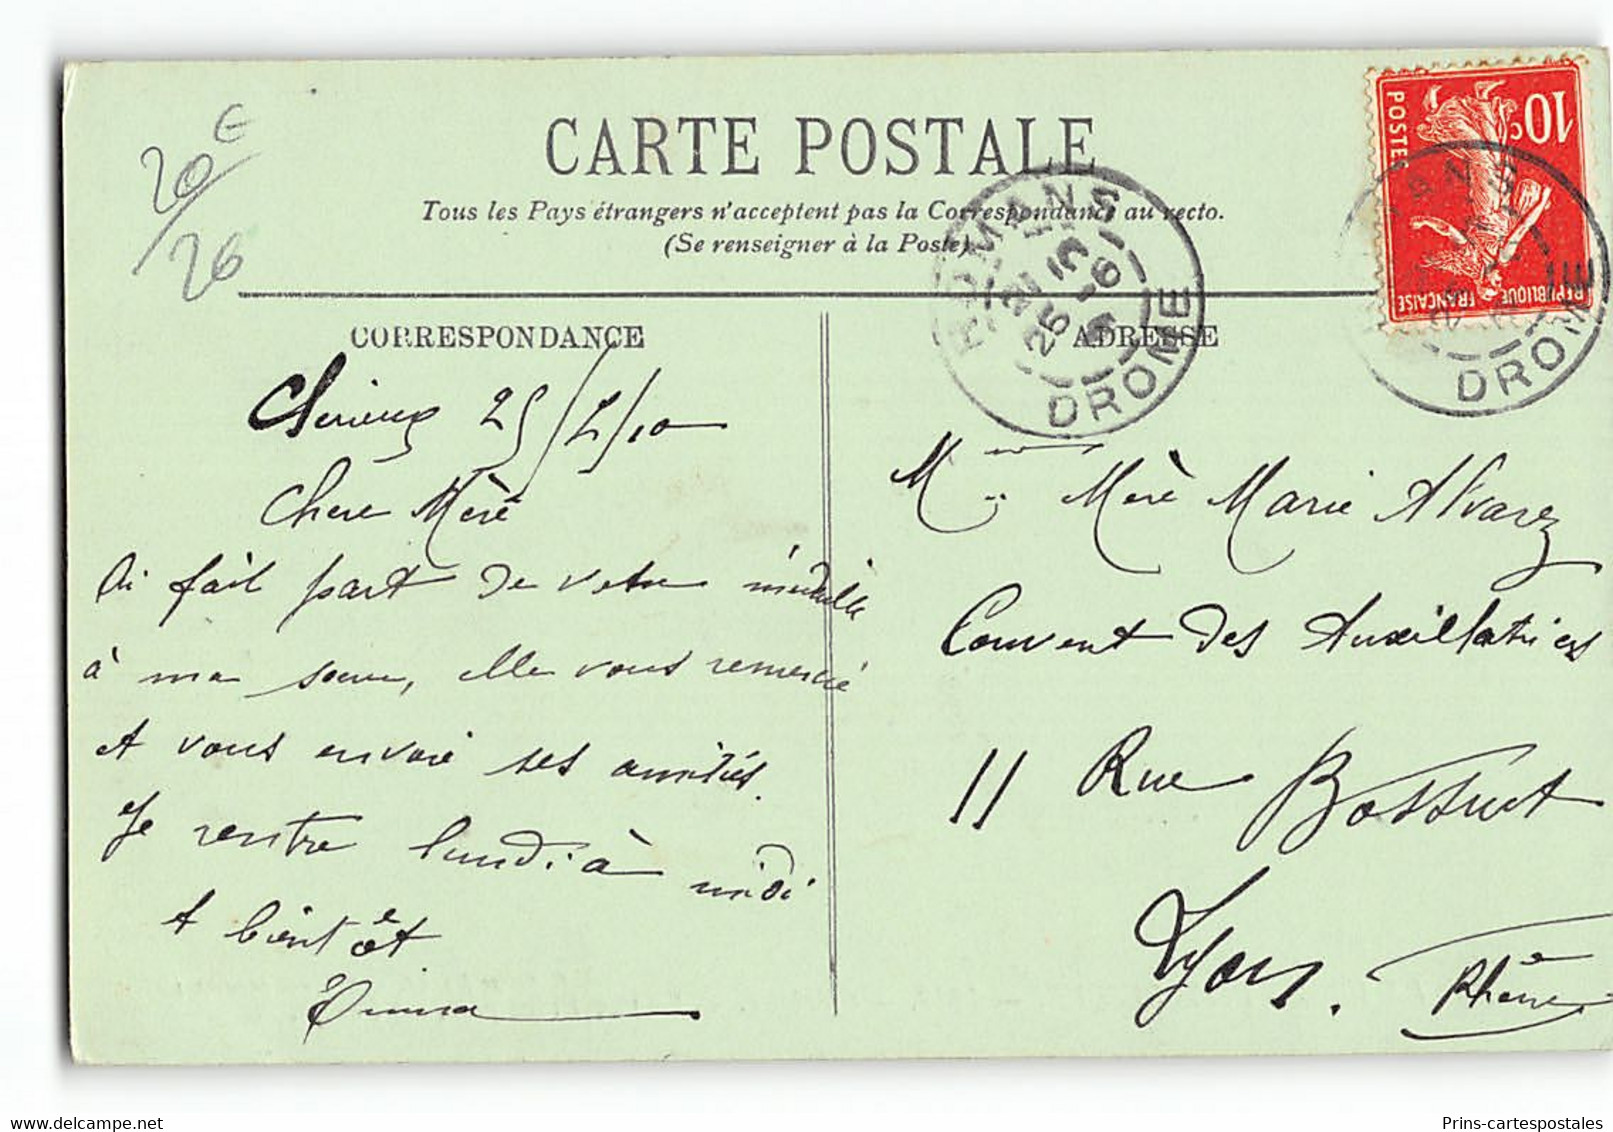 20€
26
CARTE POSTALE
Tous les Pays étrangers n'acceptent pas la Correspondance au recto.
(Se renseigner à la Poste)
10c
POSTES
REPUBLIQUE FRANÇAISE
ROMANS
DROME
DROME
CORRESPONDANCE
25/2/10
Chere Mère
Ai fait part de votre médaille
à ma soeur, elle vous remercie
et vous envoie ses amitiés.
Je rentre lundi à midi
A bientôt
Emma
ADRESSE
Mère Marie Alvarez
Couvent des Auxillatrices
11 Rue Bossuet
Lyon.
Rhône
Prins-cartespostales